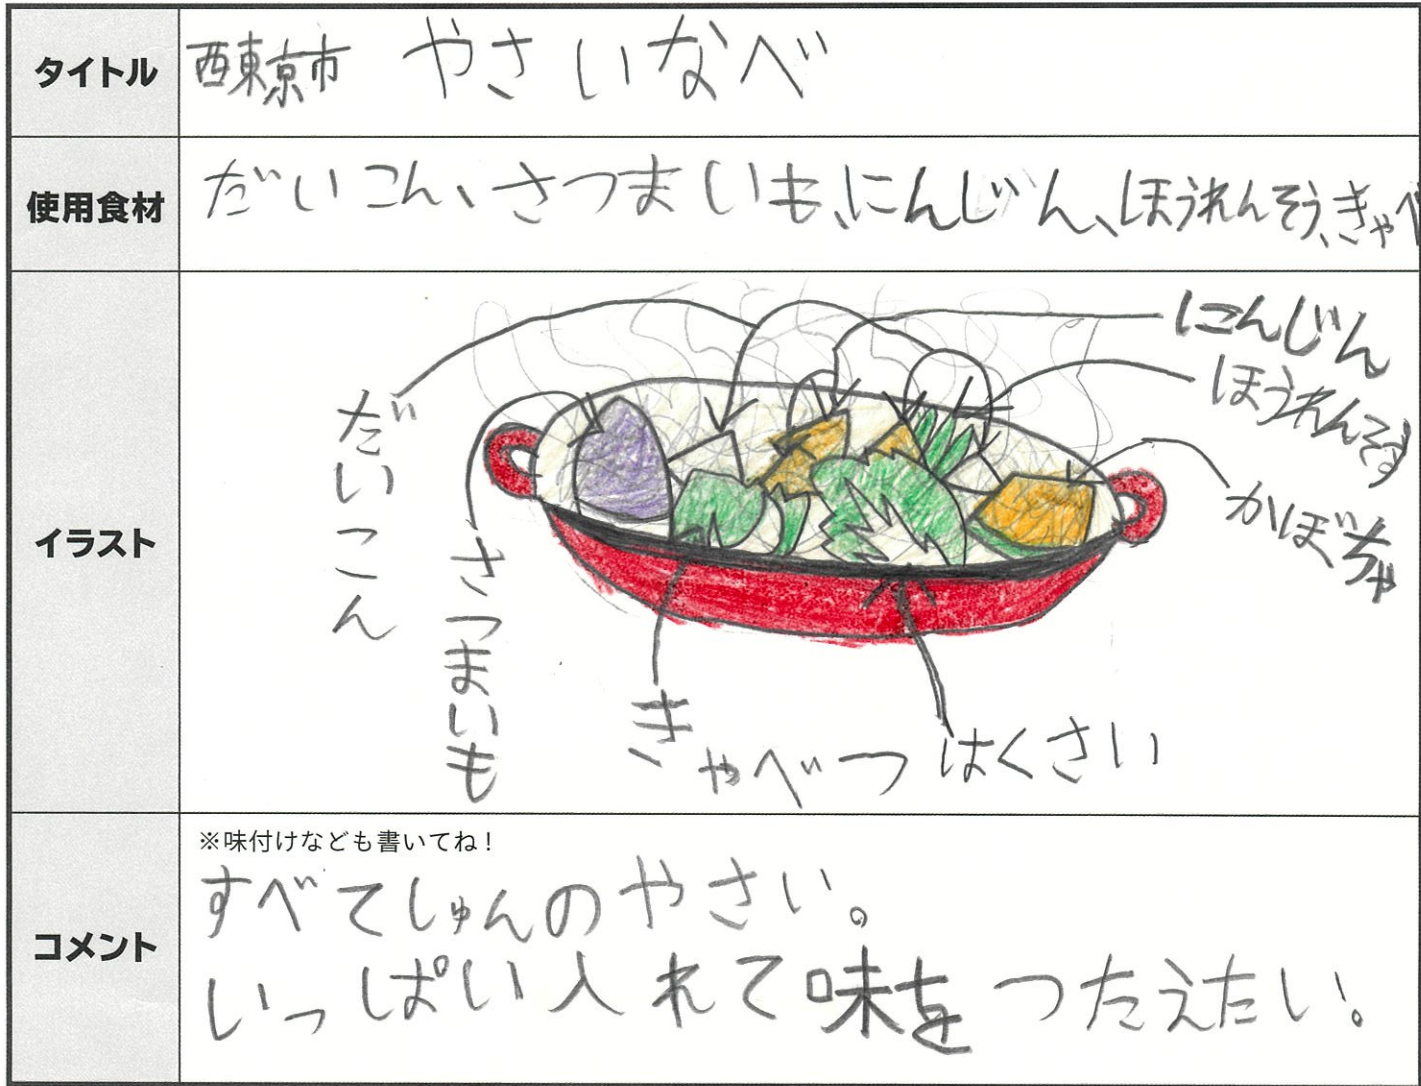 タイトル
西東京市 やさいなべ
使用食材
だいこん、さつまいも、にんじん、ほうれんそう、きゃべ
イラスト
にんじん
ほうれんそう
かぼちゃ
だいこん
さつまいも
きゃべつ
はくさい
コメント
※味付けなども書いてね!
すべてしゅんのやさい。
いっぱい入れて味をつたえたい。